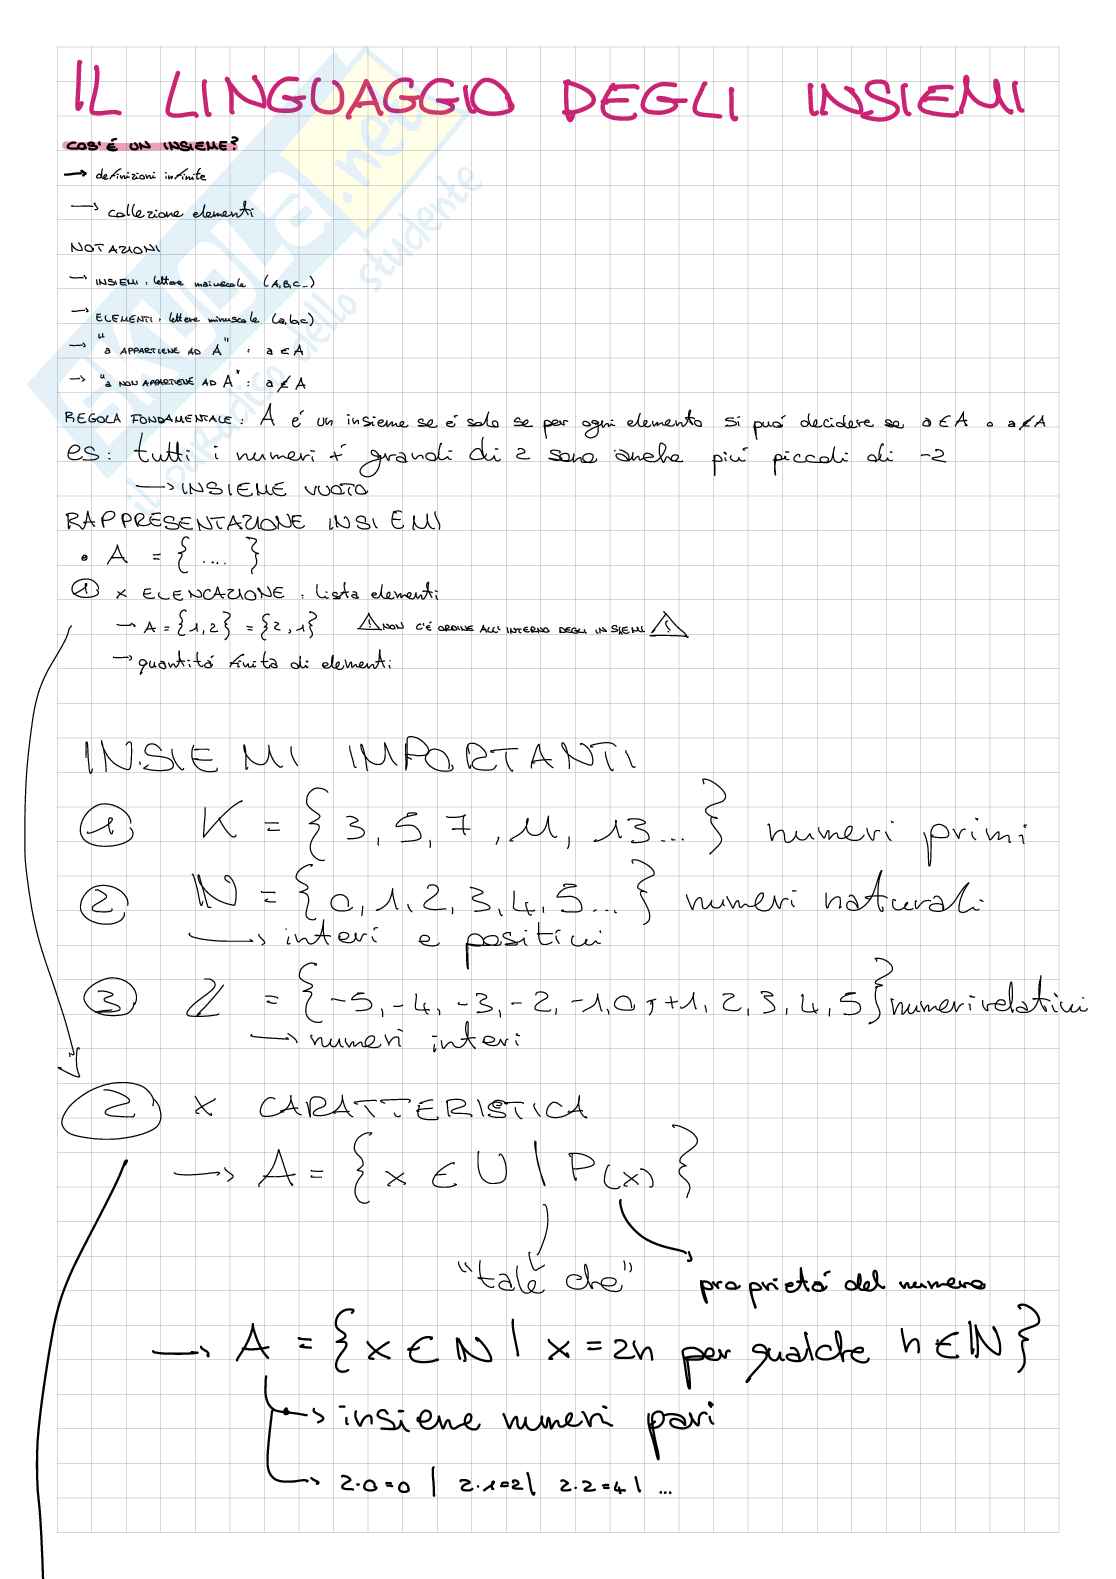 IL LINGUAGGIO DEGLI INSIEMI
COS'É UN INSIEME?
→ definizioni infinite
→ collezione elementi
NOTAZIONI
→ INSIEMI: lettere maiuscole (A,B,C...)
→ ELEMENTI: lettere minuscole (a,b,c)
→ "a APPARTIENE AD A": a ∈ A
→ "a NON APPARTIENE AD A": a ∉ A
REGOLA FONDAMENTALE: A é un insieme se é solo se per ogni elemento si puó decidere se a ∈ A o a ∉ A
es: tutti i numeri + grandi di 2 sono anche piú piccoli di -2
→ INSIEME VUOTO
RAPPRESENTAZIONE INSIEMI
• A = {....}
① x ELENCAZIONE: lista elementi
→ A = {1,2} = {2,1} ⚠ NON C'É ORDINE ALL'INTERNO DEGLI INSIEMI ⚠
→ quantitá finita di elementi
INSIEMI IMPORTANTI
① K = {3, 5, 7, 11, 13...} numeri primi
② ℕ = {0, 1, 2, 3, 4, 5...} numeri naturali
→ interi e positivi
③ ℤ = {-5, -4, -3, -2, -1, 0, +1, 2, 3, 4, 5} numeri relativi
→ numeri interi
② x CARATTERISTICA
→ A = {x ∈ U | P(x)}
"tale che" proprietá del numero
→ A = {x ∈ ℕ | x = 2n per qualche n ∈ ℕ}
→ insieme numeri pari
→ 2·0=0 | 2·1=2 | 2·2=4 | ...
SKUOLA.net
il paradiso dello studente